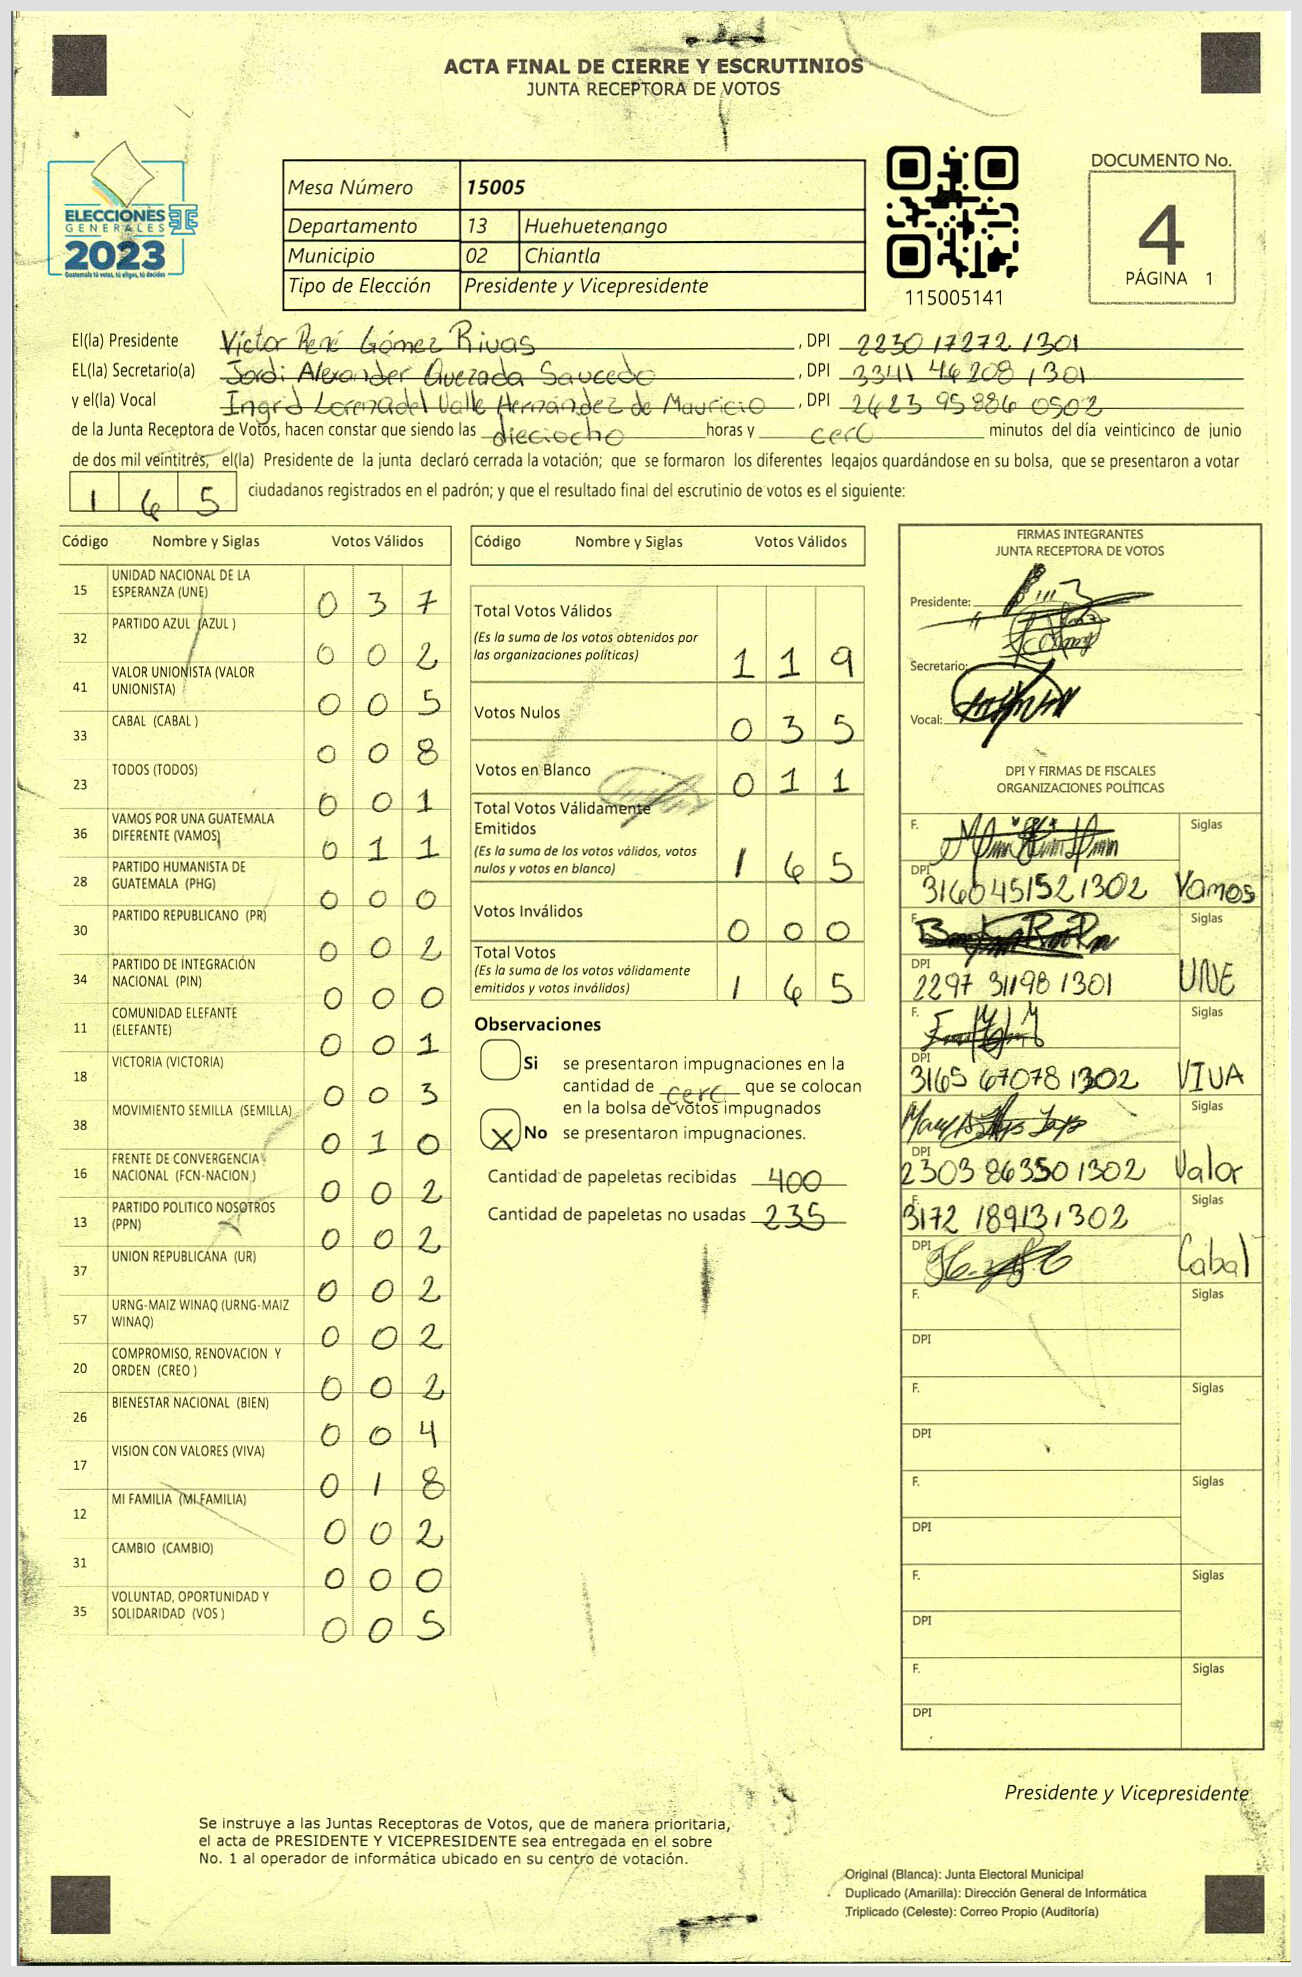 ACTA FINAL DE CIERRE Y ESCRUTINIOS
JUNTA RECEPTORA DE VOTOS
ELECCIONES
GENERALES
2023
Guatemala tú votas, tú eliges, tú decides
Mesa Número 15005
Departamento 13 Huehuetenango
Municipio 02 Chiantla
Tipo de Elección Presidente y Vicepresidente
115005141
DOCUMENTO No.
4
PÁGINA 1
El(la) Presidente Víctor René Gómez Rivas, DPI 2230 17272 1301
EL(la) Secretario(a) Jordi Alexander Quezada Saucedo, DPI 3341 46208 1301
y el(la) Vocal Ingrid Lorena del Valle Hernández de Mauricio, DPI 2623 95886 0502
de la Junta Receptora de Votos, hacen constar que siendo las dieciocho horas y cero minutos del día veinticinco de junio
de dos mil veintitrés, el(la) Presidente de la junta declaró cerrada la votación; que se formaron los diferentes legajos guardándose en su bolsa, que se presentaron a votar
165 ciudadanos registrados en el padrón; y que el resultado final del escrutinio de votos es el siguiente:
Código Nombre y Siglas Votos Válidos
15 UNIDAD NACIONAL DE LA ESPERANZA (UNE) 0 3 7
32 PARTIDO AZUL (AZUL ) 0 0 2
41 VALOR UNIONISTA (VALOR UNIONISTA) 0 0 5
33 CABAL (CABAL ) 0 0 8
23 TODOS (TODOS) 0 0 1
36 VAMOS POR UNA GUATEMALA DIFERENTE (VAMOS) 0 1 1
28 PARTIDO HUMANISTA DE GUATEMALA (PHG) 0 0 0
30 PARTIDO REPUBLICANO (PR) 0 0 2
34 PARTIDO DE INTEGRACIÓN NACIONAL (PIN) 0 0 0
11 COMUNIDAD ELEFANTE (ELEFANTE) 0 0 1
18 VICTORIA (VICTORIA) 0 0 3
38 MOVIMIENTO SEMILLA (SEMILLA) 0 1 0
16 FRENTE DE CONVERGENCIA NACIONAL (FCN-NACION ) 0 0 2
13 PARTIDO POLITICO NOSOTROS (PPN) 0 0 2
37 UNION REPUBLICANA (UR) 0 0 2
57 URNG-MAIZ WINAQ (URNG-MAIZ WINAQ) 0 0 2
20 COMPROMISO, RENOVACION Y ORDEN (CREO ) 0 0 2
26 BIENESTAR NACIONAL (BIEN) 0 0 4
17 VISION CON VALORES (VIVA) 0 1 8
12 MI FAMILIA (MI FAMILIA) 0 0 2
31 CAMBIO (CAMBIO) 0 0 0
35 VOLUNTAD, OPORTUNIDAD Y SOLIDARIDAD (VOS ) 0 0 5
Código Nombre y Siglas Votos Válidos
Total Votos Válidos
(Es la suma de los votos obtenidos por
las organizaciones políticas) 1 1 9
Votos Nulos 0 3 5
Votos en Blanco 0 1 1
Total Votos Válidamente
Emitidos
(Es la suma de los votos válidos, votos
nulos y votos en blanco) 1 6 5
Votos Inválidos 0 0 0
Total Votos
(Es la suma de los votos válidamente
emitidos y votos inválidos) 1 6 5
Observaciones
Si se presentaron impugnaciones en la
cantidad de cero que se colocan
en la bolsa de votos impugnados
X No se presentaron impugnaciones.
Cantidad de papeletas recibidas 400
Cantidad de papeletas no usadas 235
FIRMAS INTEGRANTES
JUNTA RECEPTORA DE VOTOS
Presidente:
Secretario:
Vocal:
DPI Y FIRMAS DE FISCALES
ORGANIZACIONES POLÍTICAS
F. Siglas
DPI 3160 45152 1302 Vamos
F. Siglas
DPI 2297 31198 1301 UNE
F. Siglas
DPI 3165 67078 1302 VIVA
F. Siglas
DPI 2303 86350 1302 Valor
F. 3172 18913 1302 Siglas
DPI Cabal
F. Siglas
DPI
F. Siglas
DPI
F. Siglas
DPI
F. Siglas
DPI
F. Siglas
DPI
Presidente y Vicepresidente
Se instruye a las Juntas Receptoras de Votos, que de manera prioritaria,
el acta de PRESIDENTE Y VICEPRESIDENTE sea entregada en el sobre
No. 1 al operador de informática ubicado en su centro de votación.
Original (Blanca): Junta Electoral Municipal
Duplicado (Amarilla): Dirección General de Informática
Triplicado (Celeste): Correo Propio (Auditoría)